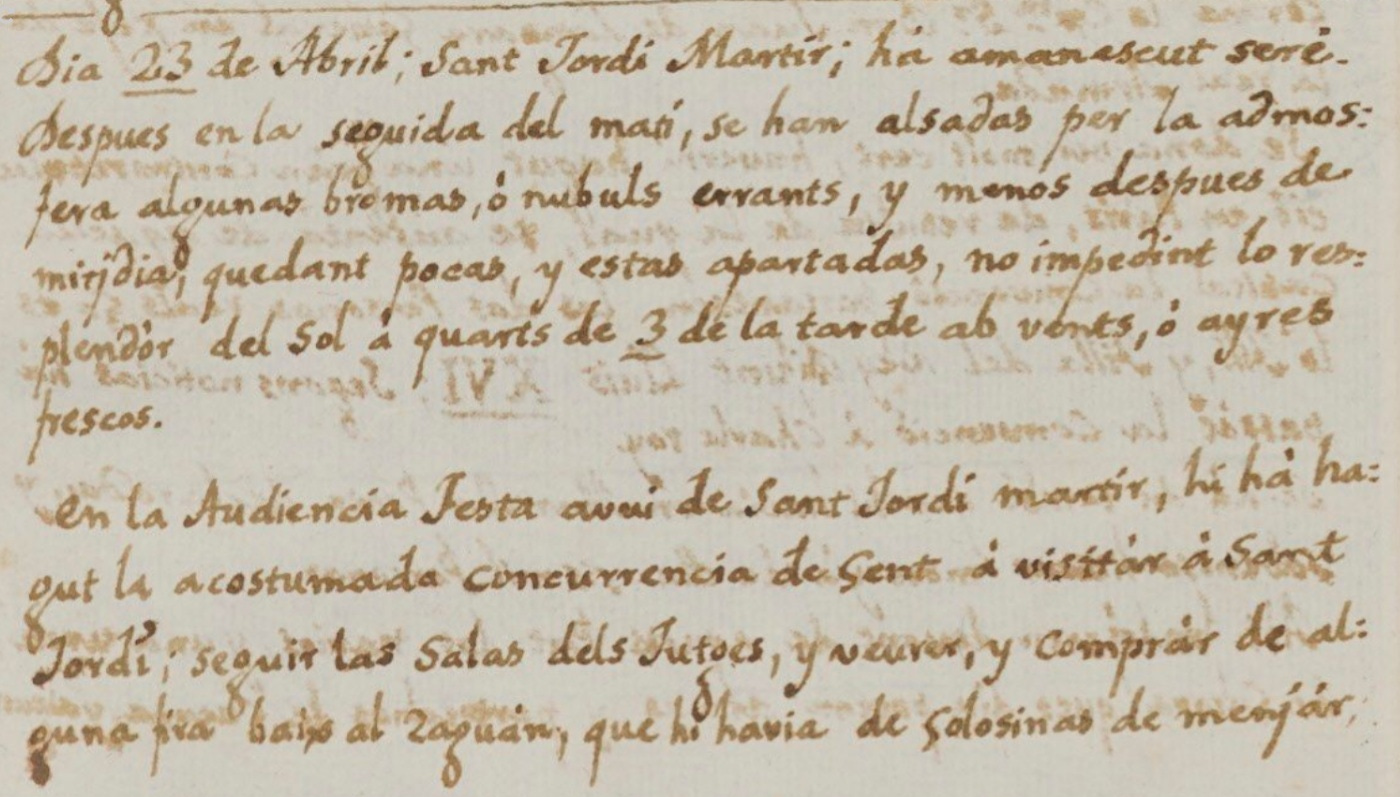 Dia 23 de Abril; Sant Jordi Martir; há amanescut seré.
Despues en la seguida del matí, se han alsadas per la admos:
fera algunas bromas, ó nubuls errants, y menos despues de
mitjdia; quedant pocas, y estas apartadas, no impedint lo res:
plendór del Sol á quarts de 3 de la tarde ab vents, ó ayres
frescos.
En la Audiencia Festa avui de Sant Jordi martir, hi há ha:
gut la acostumada concurrencia de Gent á visitár á Sant
Jordi; seguir las Salas dels Jutges, y veurer, y comprár de al:
guna fira baix al Zaguán, que hi havia de golosinas de menjár,